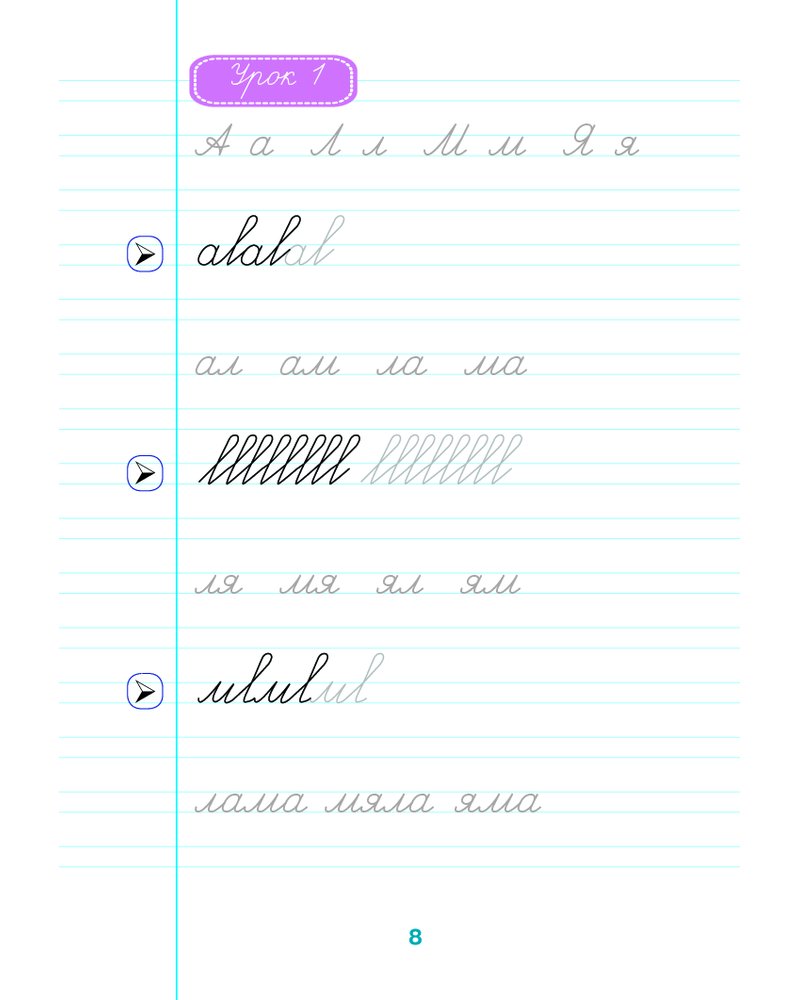 Урок 1
А а Л л М м Я я
ал ам ла ма
ля мя ял ям
лама мяла яма
8